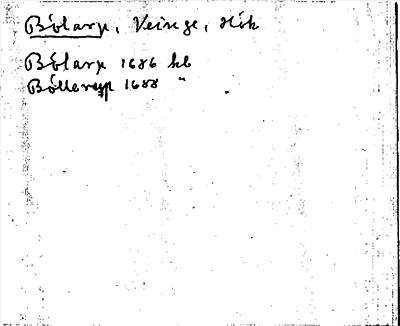 Bölarp, Veinge, Hök
Bölarp 1686 hb
Bölleryp 1688 "